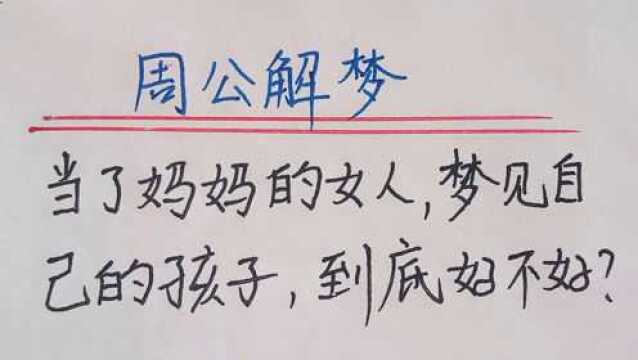 周公解梦
当了妈妈的女人,梦见自
己的孩子,到底好不好?